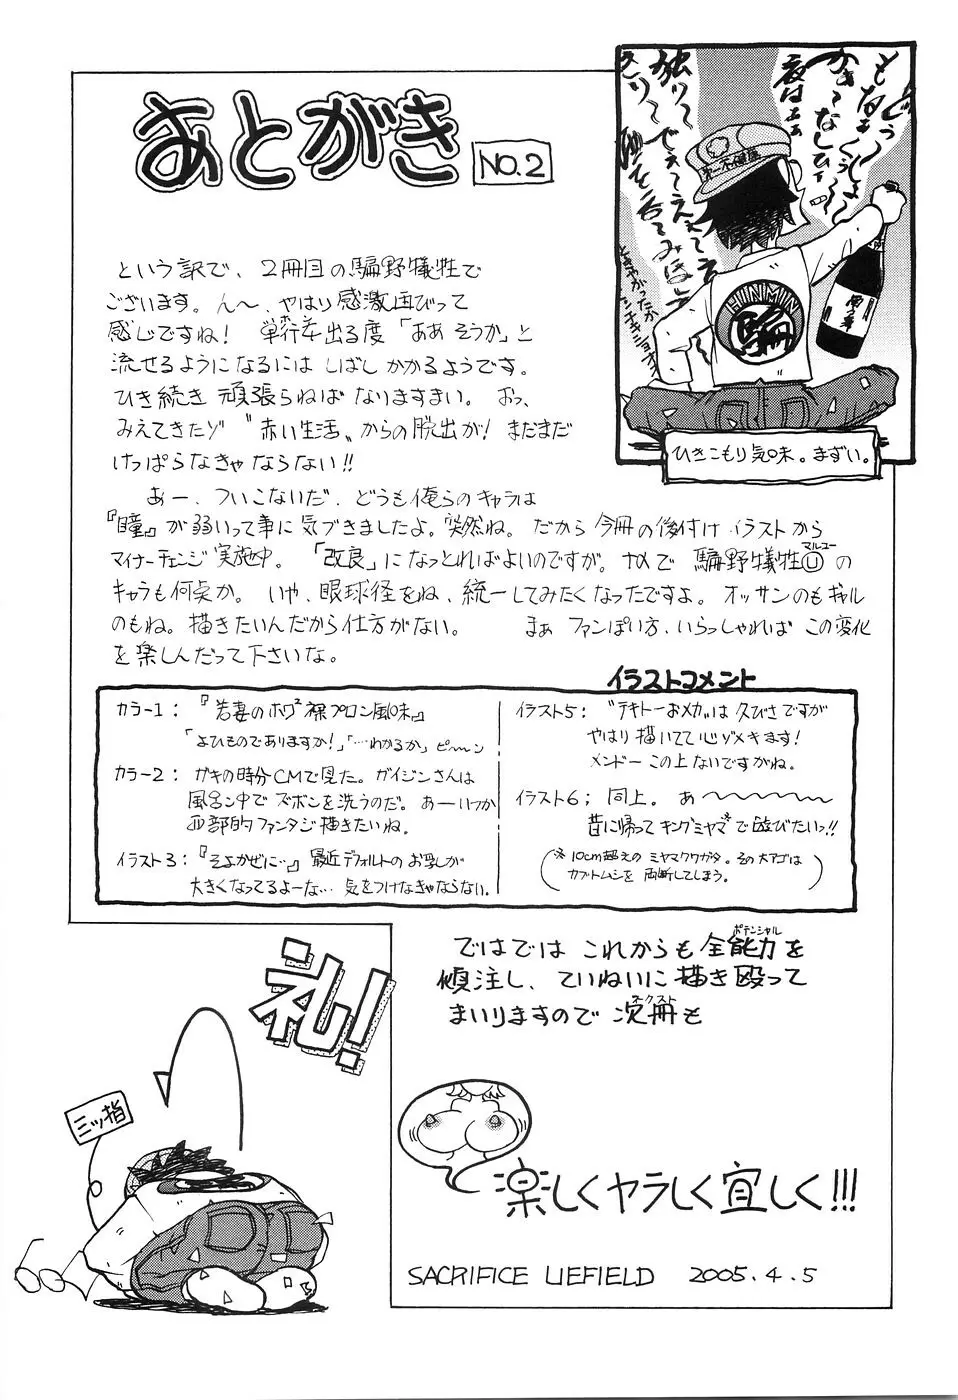 あとがき
NO.2
という訳で、2冊目の騙野犠牲で
ございます。ん〜、やはり感激再びって
感じですね! 単行本出る度「ああ そうか」と
流せるようになるには しばし かかるようです。
ひき続き 頑張らねば なりますまい。おっ、
みえてきたゾ "赤い生活" からの脱出が! まだまだ
けっぱらなきゃならない!!
あー、ついこないだ、どうも俺らのキャラは
『瞳』が弱いって事に気づきましたよ。突然ね。だから今冊の後付けイラストから
マイナーチェンジ実施中。「改良」になっとればよいのですが。なので 騙野犠牲Ⓤの
マルユー
キャラも何点か。いや、眼球径をね、統一してみたくなったですよ。オッサンのもギャル
のもね。描きたいんだから仕方がない。 まぁ ファンぽい方、いらっしゃれば この変化
を楽しんだって下さいな。
ひきこもり気味。まずい。
HINMIN
騙
イラストコメント
カラー1: 『若妻のホワ²裸プロン風味』
「よひものでありますか!」「…わかるか」ピーン
カラー2: ガキの時分CMで見た。ガイジンさんは
風呂ン中で ズボンを洗うのだ。あーいつか
西部的ファンタジ描きたいね。
イラスト3:『そよかぜに…』最近デフォルトのお乳が
大きくなってるよーな… 気をつけなきゃならない。
イラスト5: "テキトーおメカ"は 久びさですが
やはり 描いてて 心ゾメキます!
メンドー この上ないですがね。
イラスト6; 同上。 あ〜〜〜〜〜
昔に帰って キングミヤマ※で遊びたいっ!!
(※ 10cm超えの ミヤマクワガタ。その大アゴは
カブトムシを 両断してしまう。)
ではでは これからも 全能力を
ポテンシャル
傾注し、ていねいに描き殴って
まいりますので 次冊も
ネクスト
礼!
三ツ指
楽しくヤラしく宜しく!!!
SACRIFICE LIEFIELD 2005.4.5